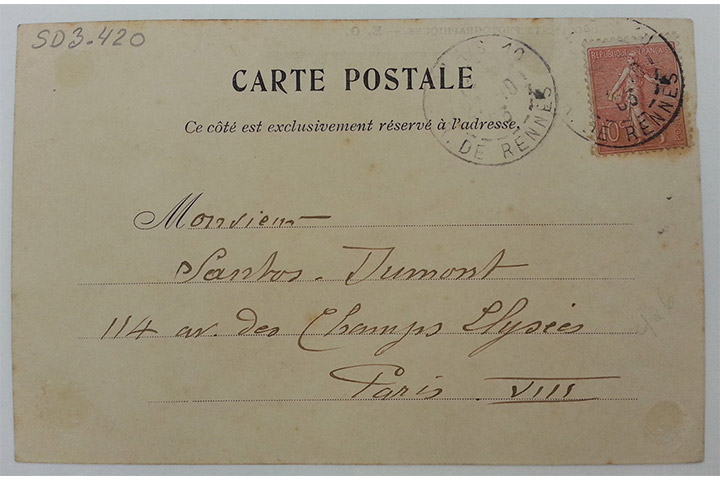 SD3-420
CARTE POSTALE
Ce côté est exclusivement réservé à l'adresse.
DE RENNES
REPUBLIQUE FRANÇAISE
10
DE RENNES
Monsieur
Santos-Dumont
114 av. des Champs Elysées
Paris VIII